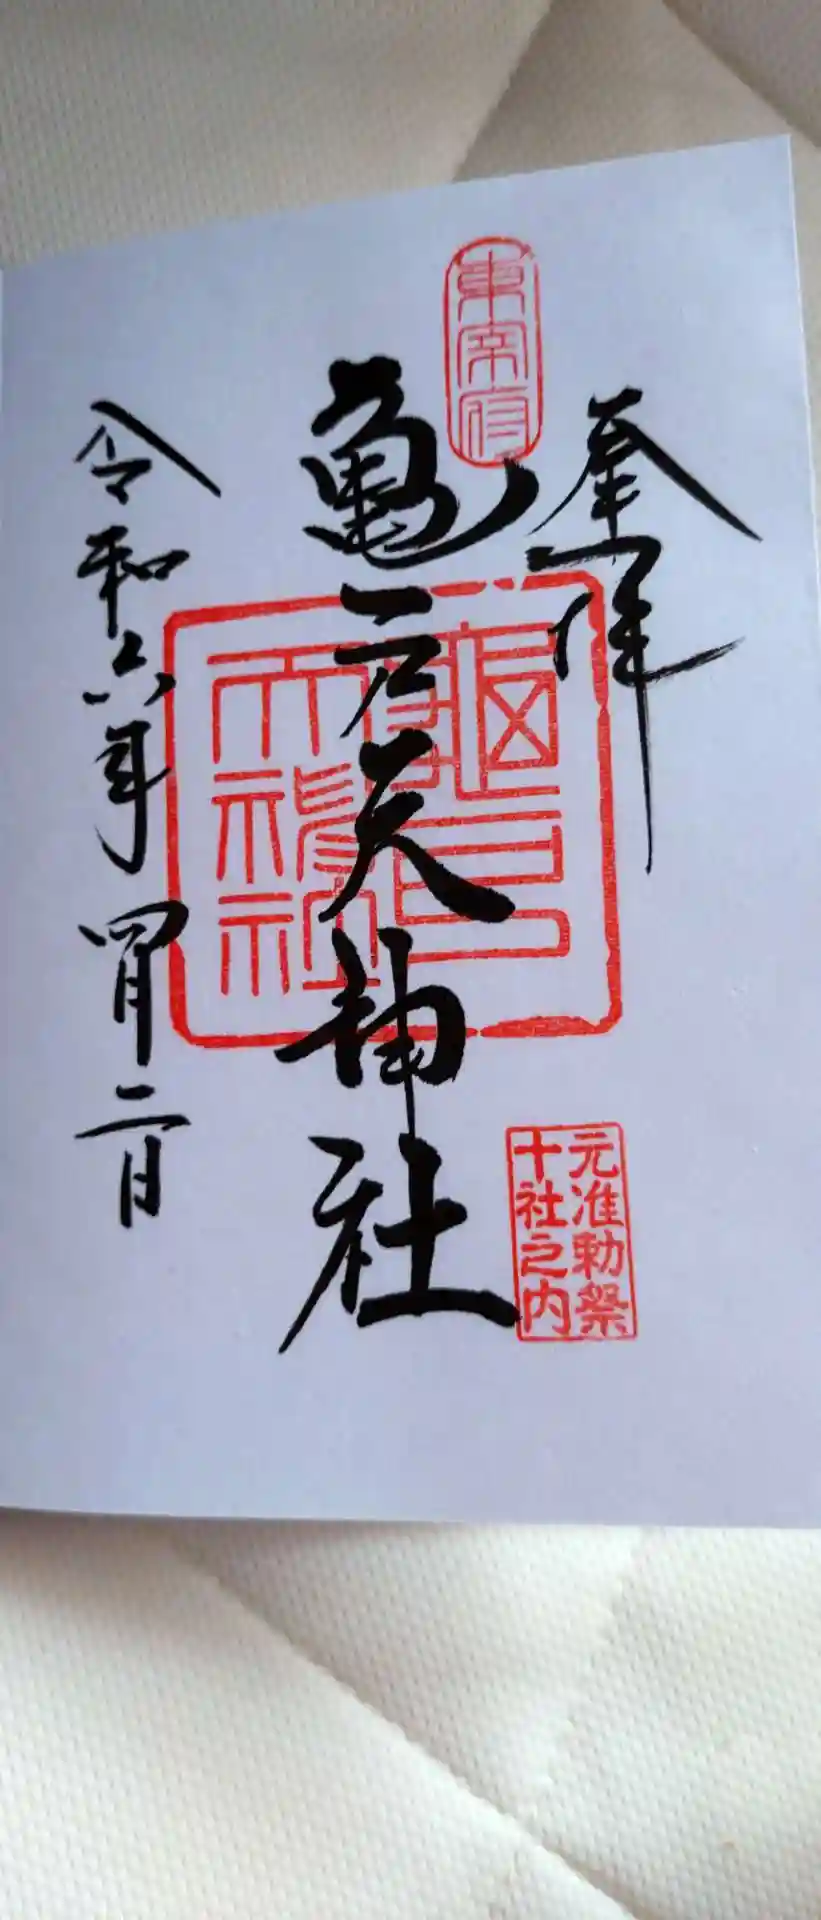 奉拝
東宰府
亀戸天神社
亀戸天神社
元准勅祭
十社之内
令和六年四月二日